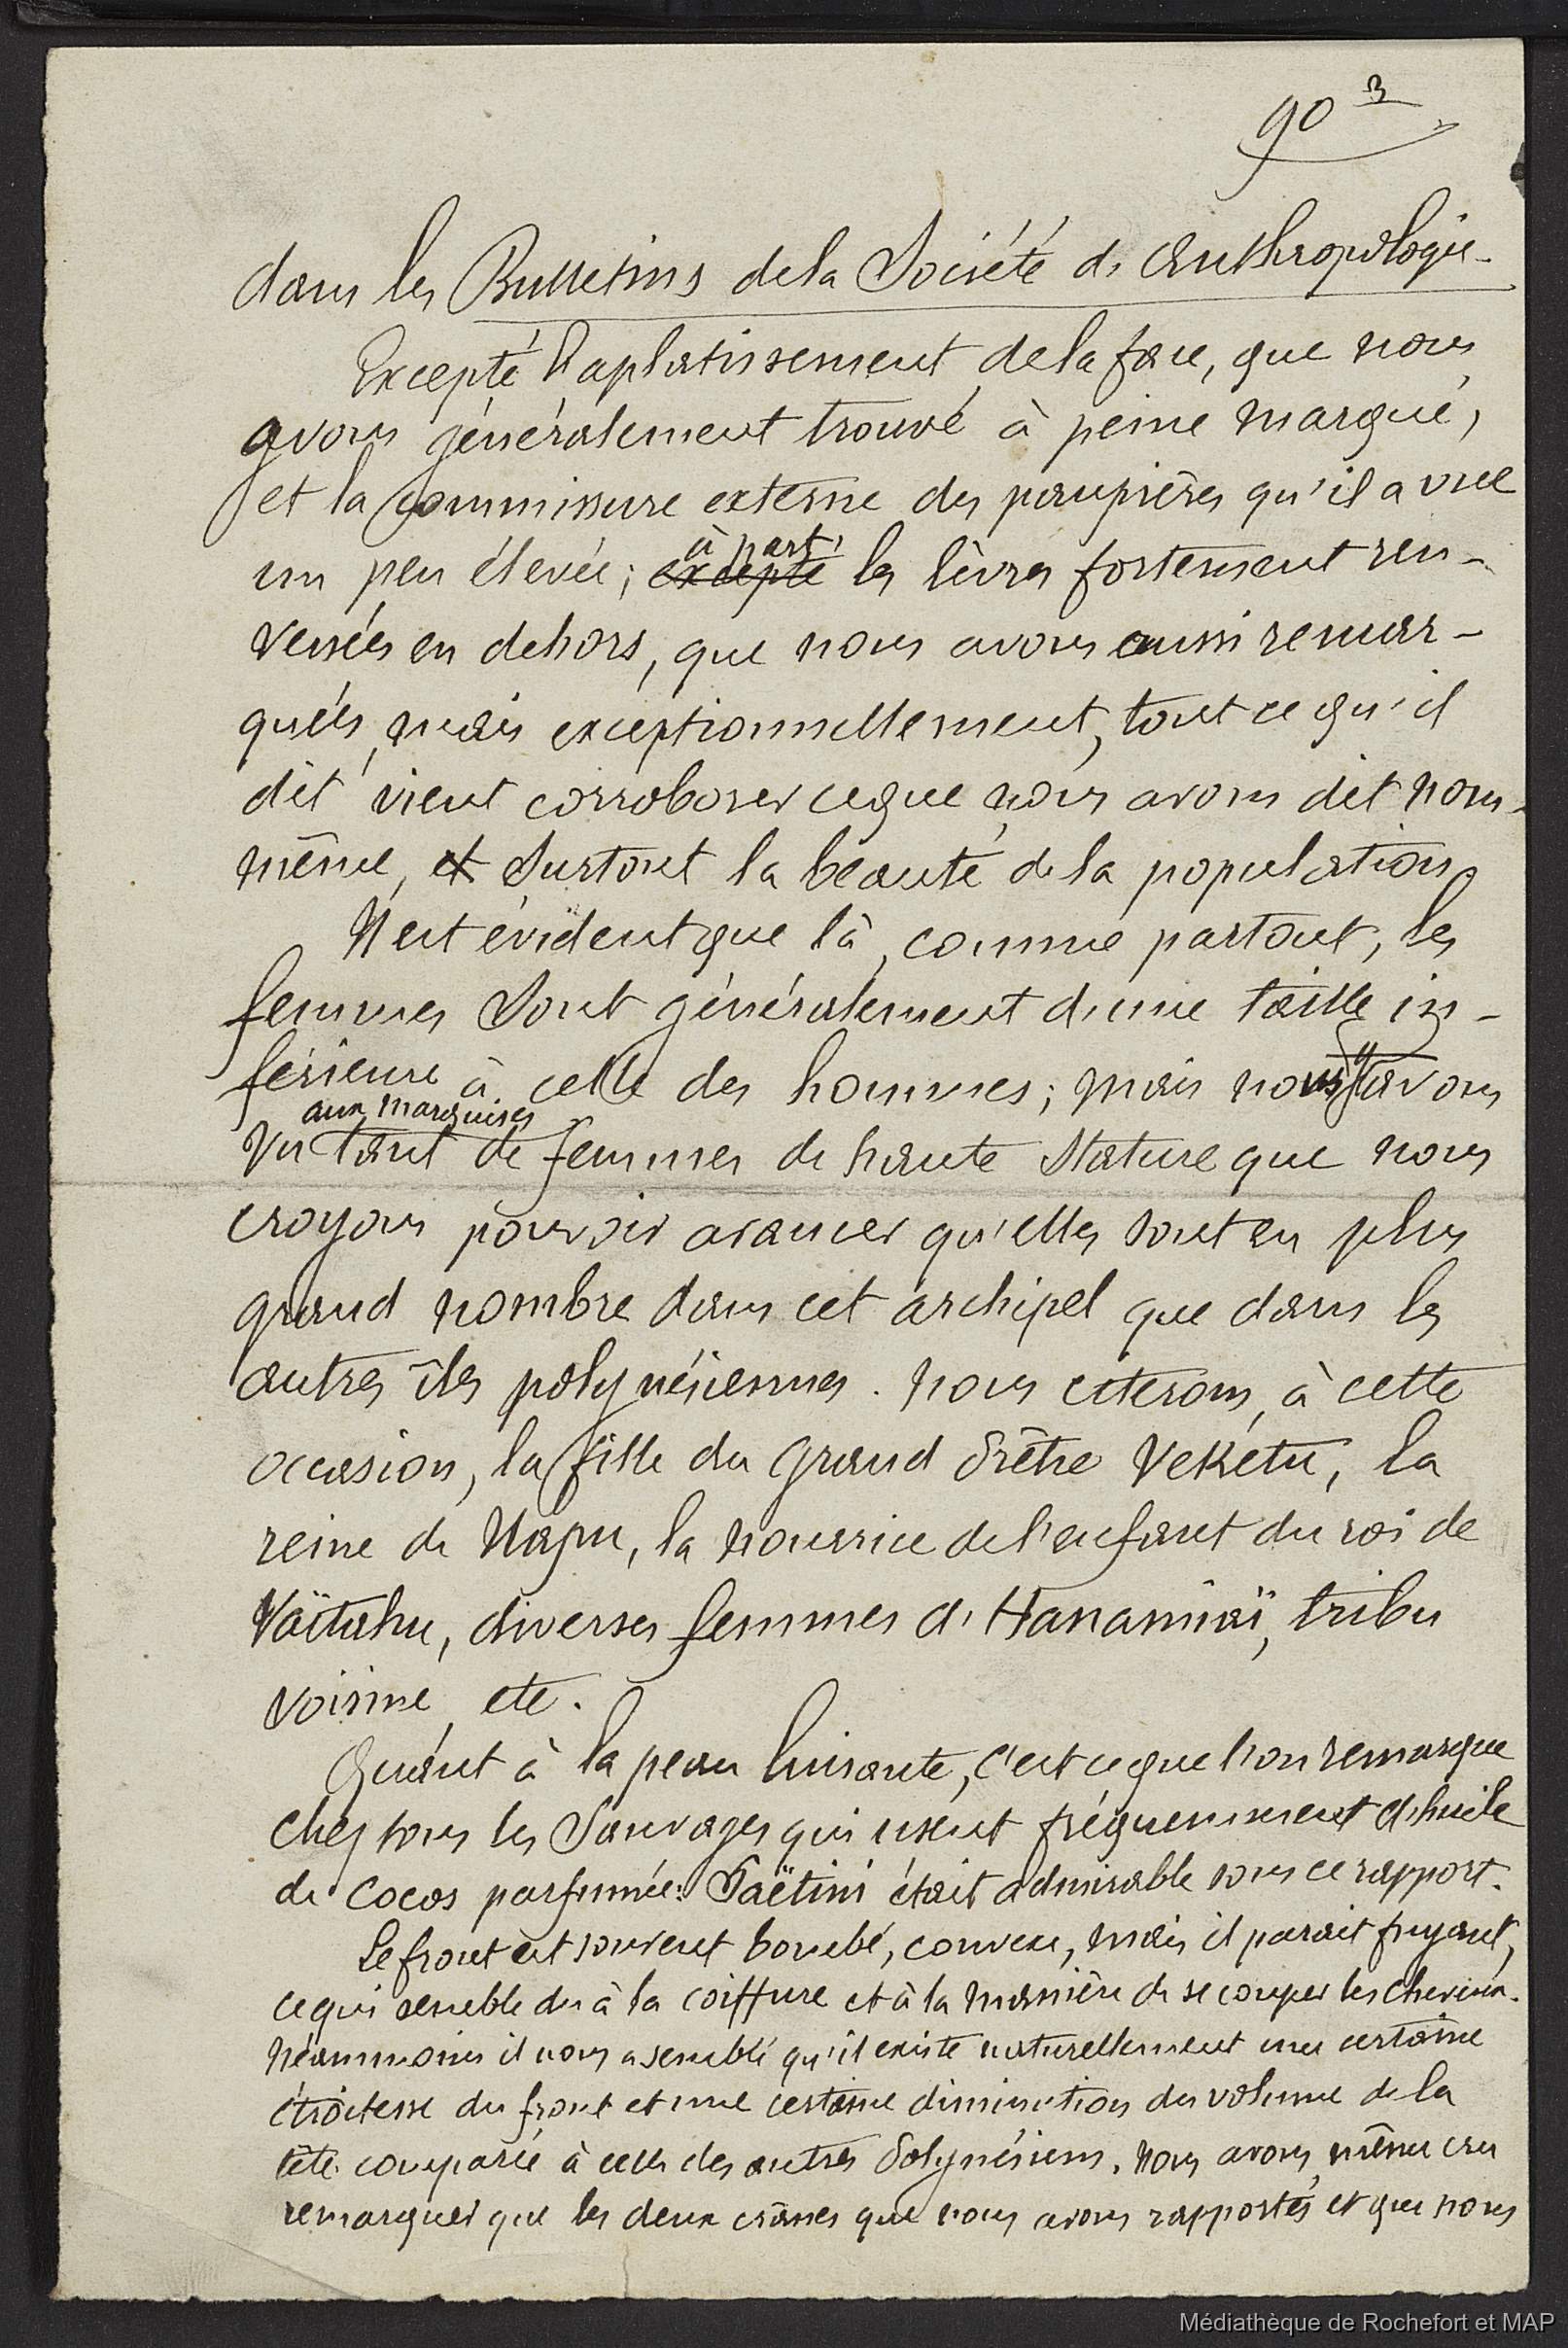 90 3
dans les Bulletins de la Société d'Anthropologie.
Excepté l'aplatissement de la face, que nous
avons généralement trouvé à peine marqué,
et la commissure externe des paupières qu'il a vue
un peu élevée; excepté à part, les lèvres fortement ren-
versées en dehors, que nous avons aussi remar-
quées, mais exceptionnellement, tout ce qu'il
dit vient corroborer ce que nous avons dit nous-
même, et surtout la beauté de la population.
Il est évident que là, comme partout, les
femmes sont généralement d'une taille in-
férieure à celle des hommes; mais nous avons
aux Marquises
vu tant de femmes de haute stature que nous
croyons pouvoir avancer qu'elles sont en plus
grand nombre dans cet archipel que dans les
autres îles polynésiennes. Nous citerons, à cette
occasion, la fille du Grand Prêtre Veketu, la
reine de Uapu, la nourrice de l'enfant du roi de
Vaïtahu, diverses femmes d'Hanamiaï, tribu
voisine, etc.
Quant à la peau luisante, c'est ce que l'on remarque
chez tous les Sauvages qui usent fréquemment d'huile
de cocos parfumée. Paëtini était admirable sous ce rapport.
Le front est souvent bombé, convexe, mais il parait fuyant,
ce qui semble du à la coiffure et à la manière de se couper les cheveux.
Néanmoins il nous a semblé qu'il existe naturellement une certaine
étroitesse du front et une certaine diminution du volume de la
tête comparée à celle des autres Polynésiens. Nous avons même cru
remarquer que les deux crânes que nous avons rapportés et que nous
Médiathèque de Rochefort et MAP